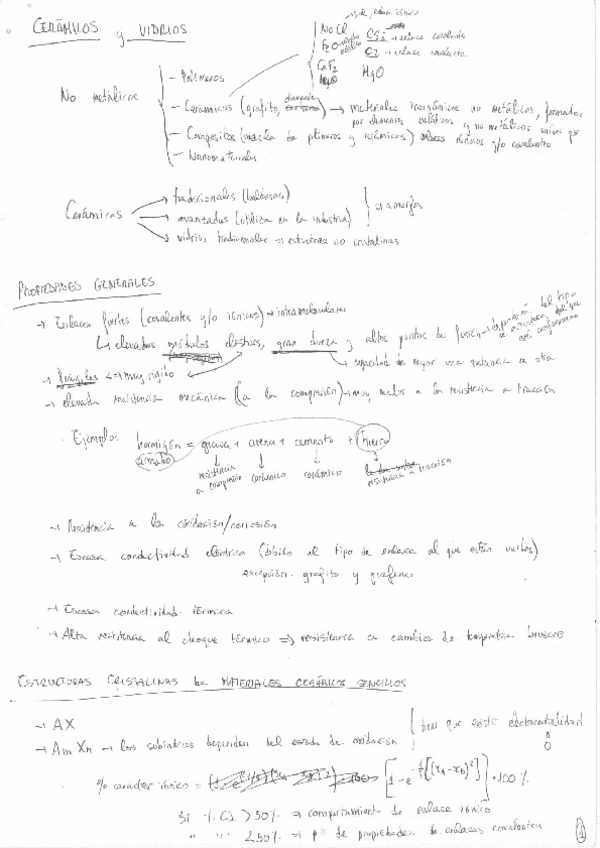 CERÁMICOS y VIDRIOS
NaCl
Fe2O
CaF2
MgO
CSi → enlace covalente
C2 → enlace covalente
HgO
No metálicos
- Polímeros
- Cerámicos (grafito, diamante) → materiales inorgánicos no metálicos, formados
por elementos metálicos y no metálicos unidos por
enlaces iónicos y/o covalentes
- Compositos (mezcla de polímeros y cerámicos)
- Nanomateriales
Cerámicas
tradicionales (baldosas)
avanzadas (utiliza en la industria)
vidrios tradicionales → estructuras no cristalinas
⇒ amorfos
PROPIEDADES GENERALES
→ Enlaces fuertes (covalentes y/o iónicos) → intramoleculares
↳ elevados módulos elásticos, gran dureza y altos puntos de fusión → dependerá del tipo
de estructura que
conforman
→ capacidad de rayar una sustancia a otra
→ frágiles ↔ muy rígido
→ elevada resistencia mecánica (a la compresión) → muy malos a la resistencia a tracción
Ejemplo: hormigón = grava + arena + cemento + hierro
armado
resistencia a compresión cerámico cerámico resistencia a tracción
→ Resistencia a la oxidación/corrosión
→ Escasa conductividad eléctrica (debido al tipo de enlace al que están unidos)
excepción: grafito y grafeno
→ Escasa conductividad térmica
→ Alta resistencia al choque térmico ⇒ resistencia a cambios de temperatura bruscos
ESTRUCTURAS CRISTALINAS DE MATERIALES CERÁMICOS SENCILLOS
→ AX
→ AmXn → los subíndices dependen del estado de oxidación
tiene que existir electroneutralidad
0
% carácter iónico = [1 - e^-1/4[(xA-xB)²]]·100%
Si % CI > 50% ⇒ comportamiento de enlace iónico
" " " < 50% ⇒ de propiedades de enlaces covalentes
1